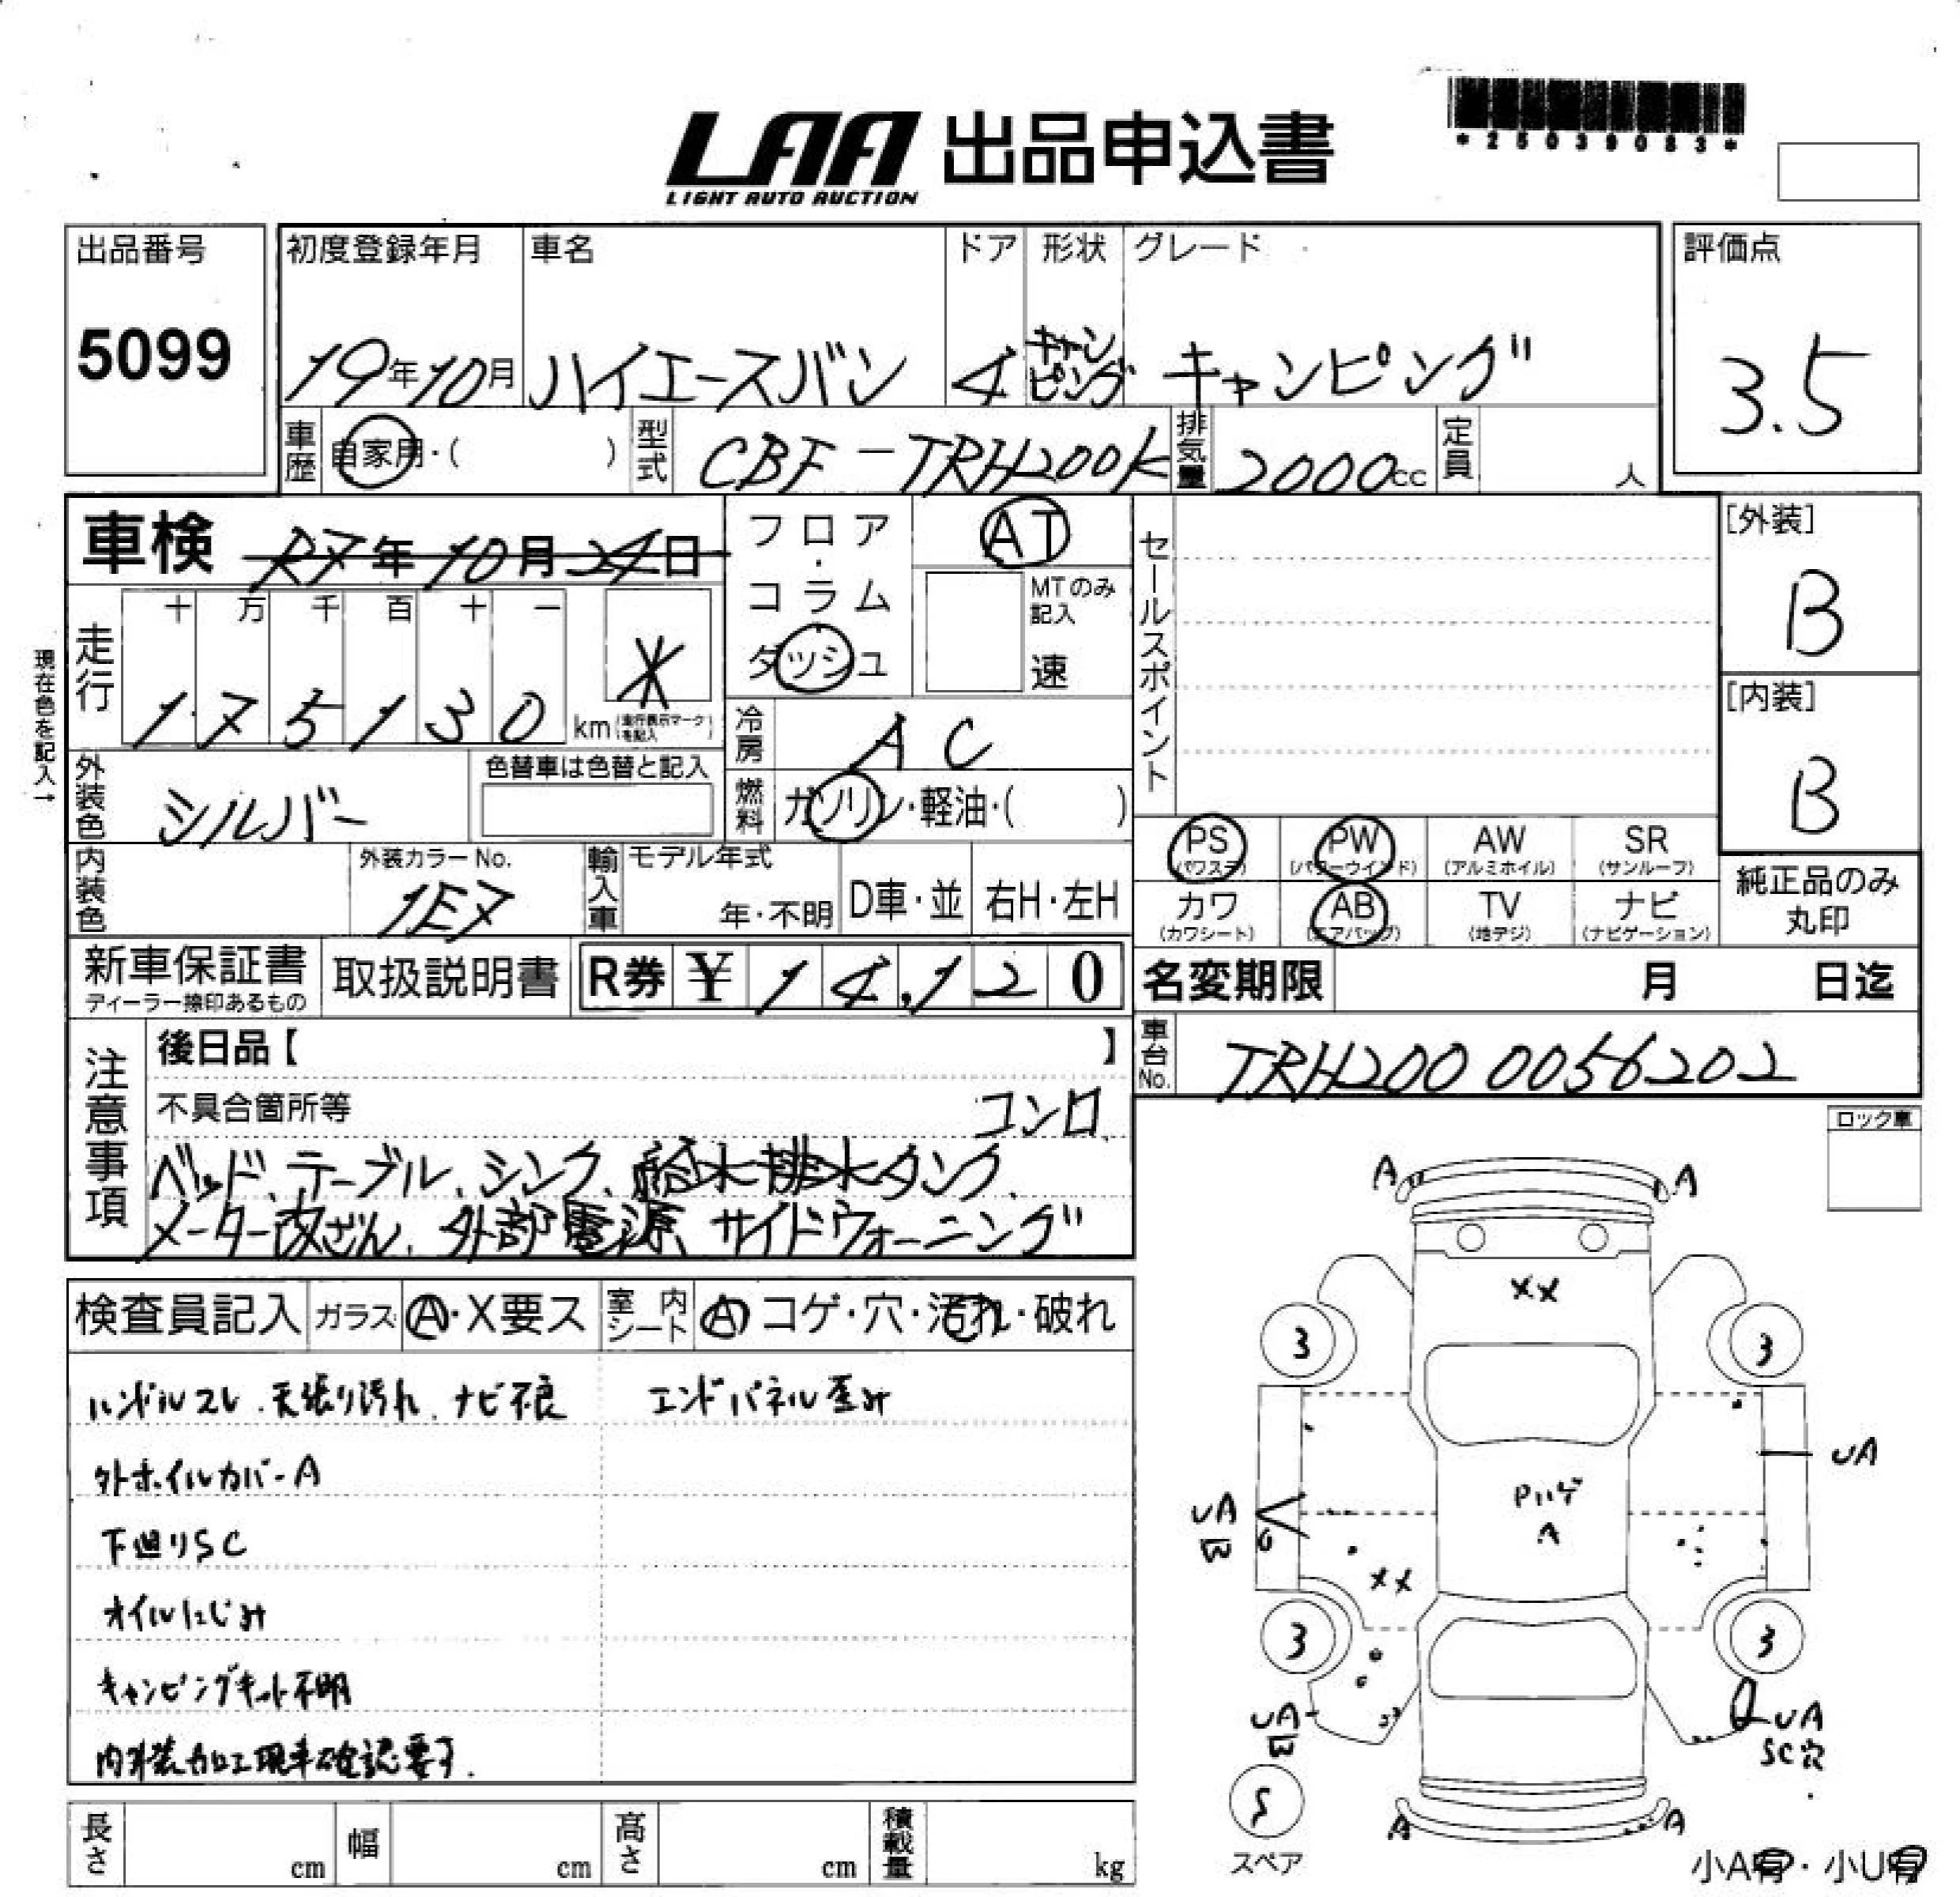 *25039083*
LAA 出品申込書
LIGHT AUTO AUCTION
出品番号 初度登録年月 車名 ドア 形状 グレード 評価点
5099 19年10月 ハイエースバン 4 キャンピング キャンピング 3.5
車歴 自家用・( ) 型式 CBF-TRH200K 排気量 2000cc 定員 人
車検 R7年10月24日 フロア・コラム ダッシュ AT セールスポイント [外装]
B
十 万 千 百 十 一 MTのみ記入 速
走行 175130 km (走行表示マークを記入) *
現在色を記入→
冷房 AC [内装]
B
外装色 シルバー 色替車は色替と記入 燃料 ガソリン・軽油・( )
PS (パワステ) PW (パワーウインド) AW (アルミホイル) SR (サンルーフ)
カワ (カワシート) AB (エアバッグ) TV (地デジ) ナビ (ナビゲーション) 純正品のみ丸印
内装色 外装カラーNo. 1E7 輸入車 モデル年式 年・不明 D車・並 右H・左H
新車保証書 ディーラー捺印あるもの 取扱説明書 R券 ¥14,120 名変期限 月 日迄
車台No. TRH200 0056202
注意事項 後日品【 】
不具合箇所等 コンロ
ベッド、テーブル、シンク、給水排水タンク、
メーター改ざん、外部電源、サイドウォーニング
ロック車
検査員記入 ガラス A・X要ス 室内シート A コゲ・穴・汚れ・破れ
ハンドルスレ、天張り汚れ、ナビ不良 エンドパネル歪み
外ホイルカバーA
下廻りSC
オイルにじみ
キャンピングキット不明
内外装加工現車確認要す.
A A
XX
3 3
UA
Pハゲ
A
UA
W
XX
3 3
UA
W
UA
SC穴
S
スペア
A A
小A有・小U有
長さ cm 幅 cm 高さ cm 積載量 kg